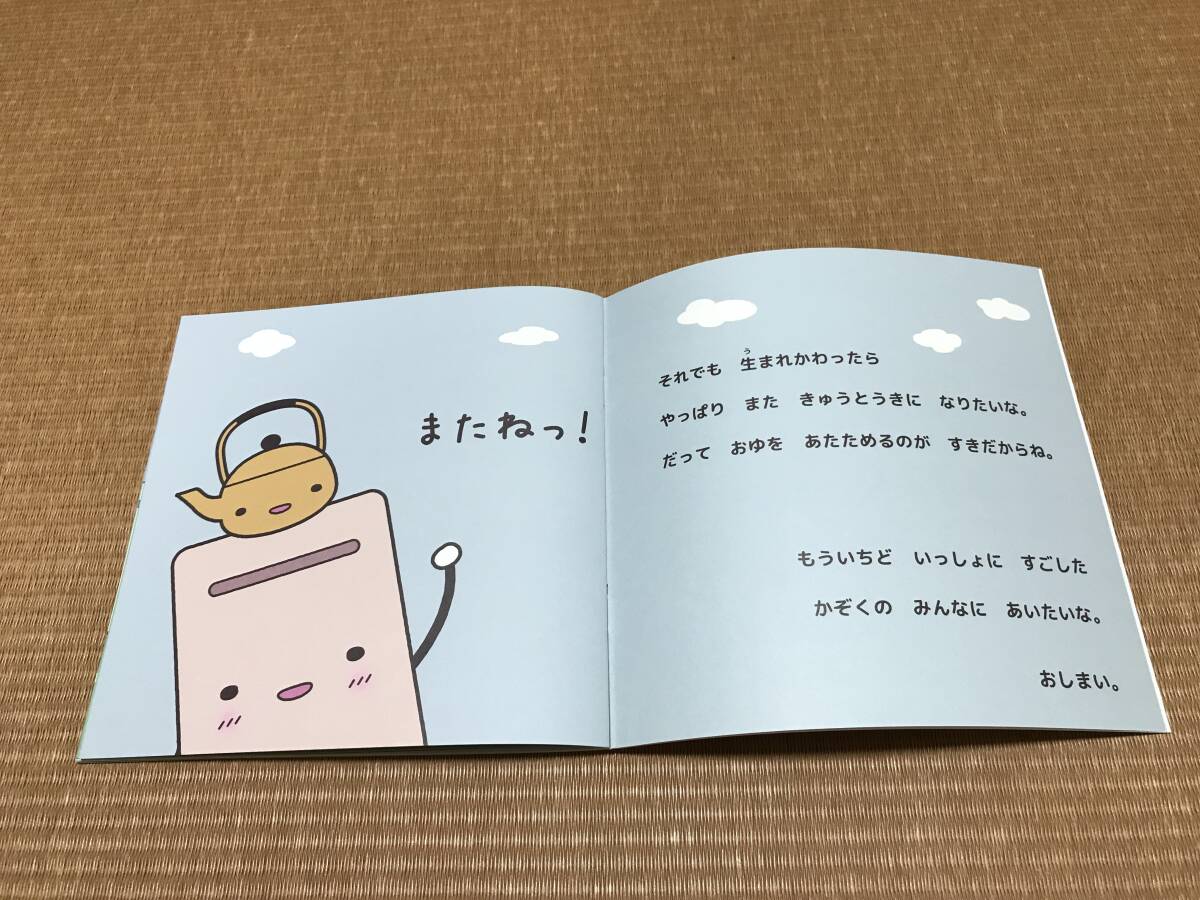 またねっ!
それでも 生まれかわったら
う
やっぱり また きゅうとうきに なりたいな。
だって おゆを あたためるのが すきだからね。
もういちど いっしょに すごした
かぞくの みんなに あいたいな。
おしまい。